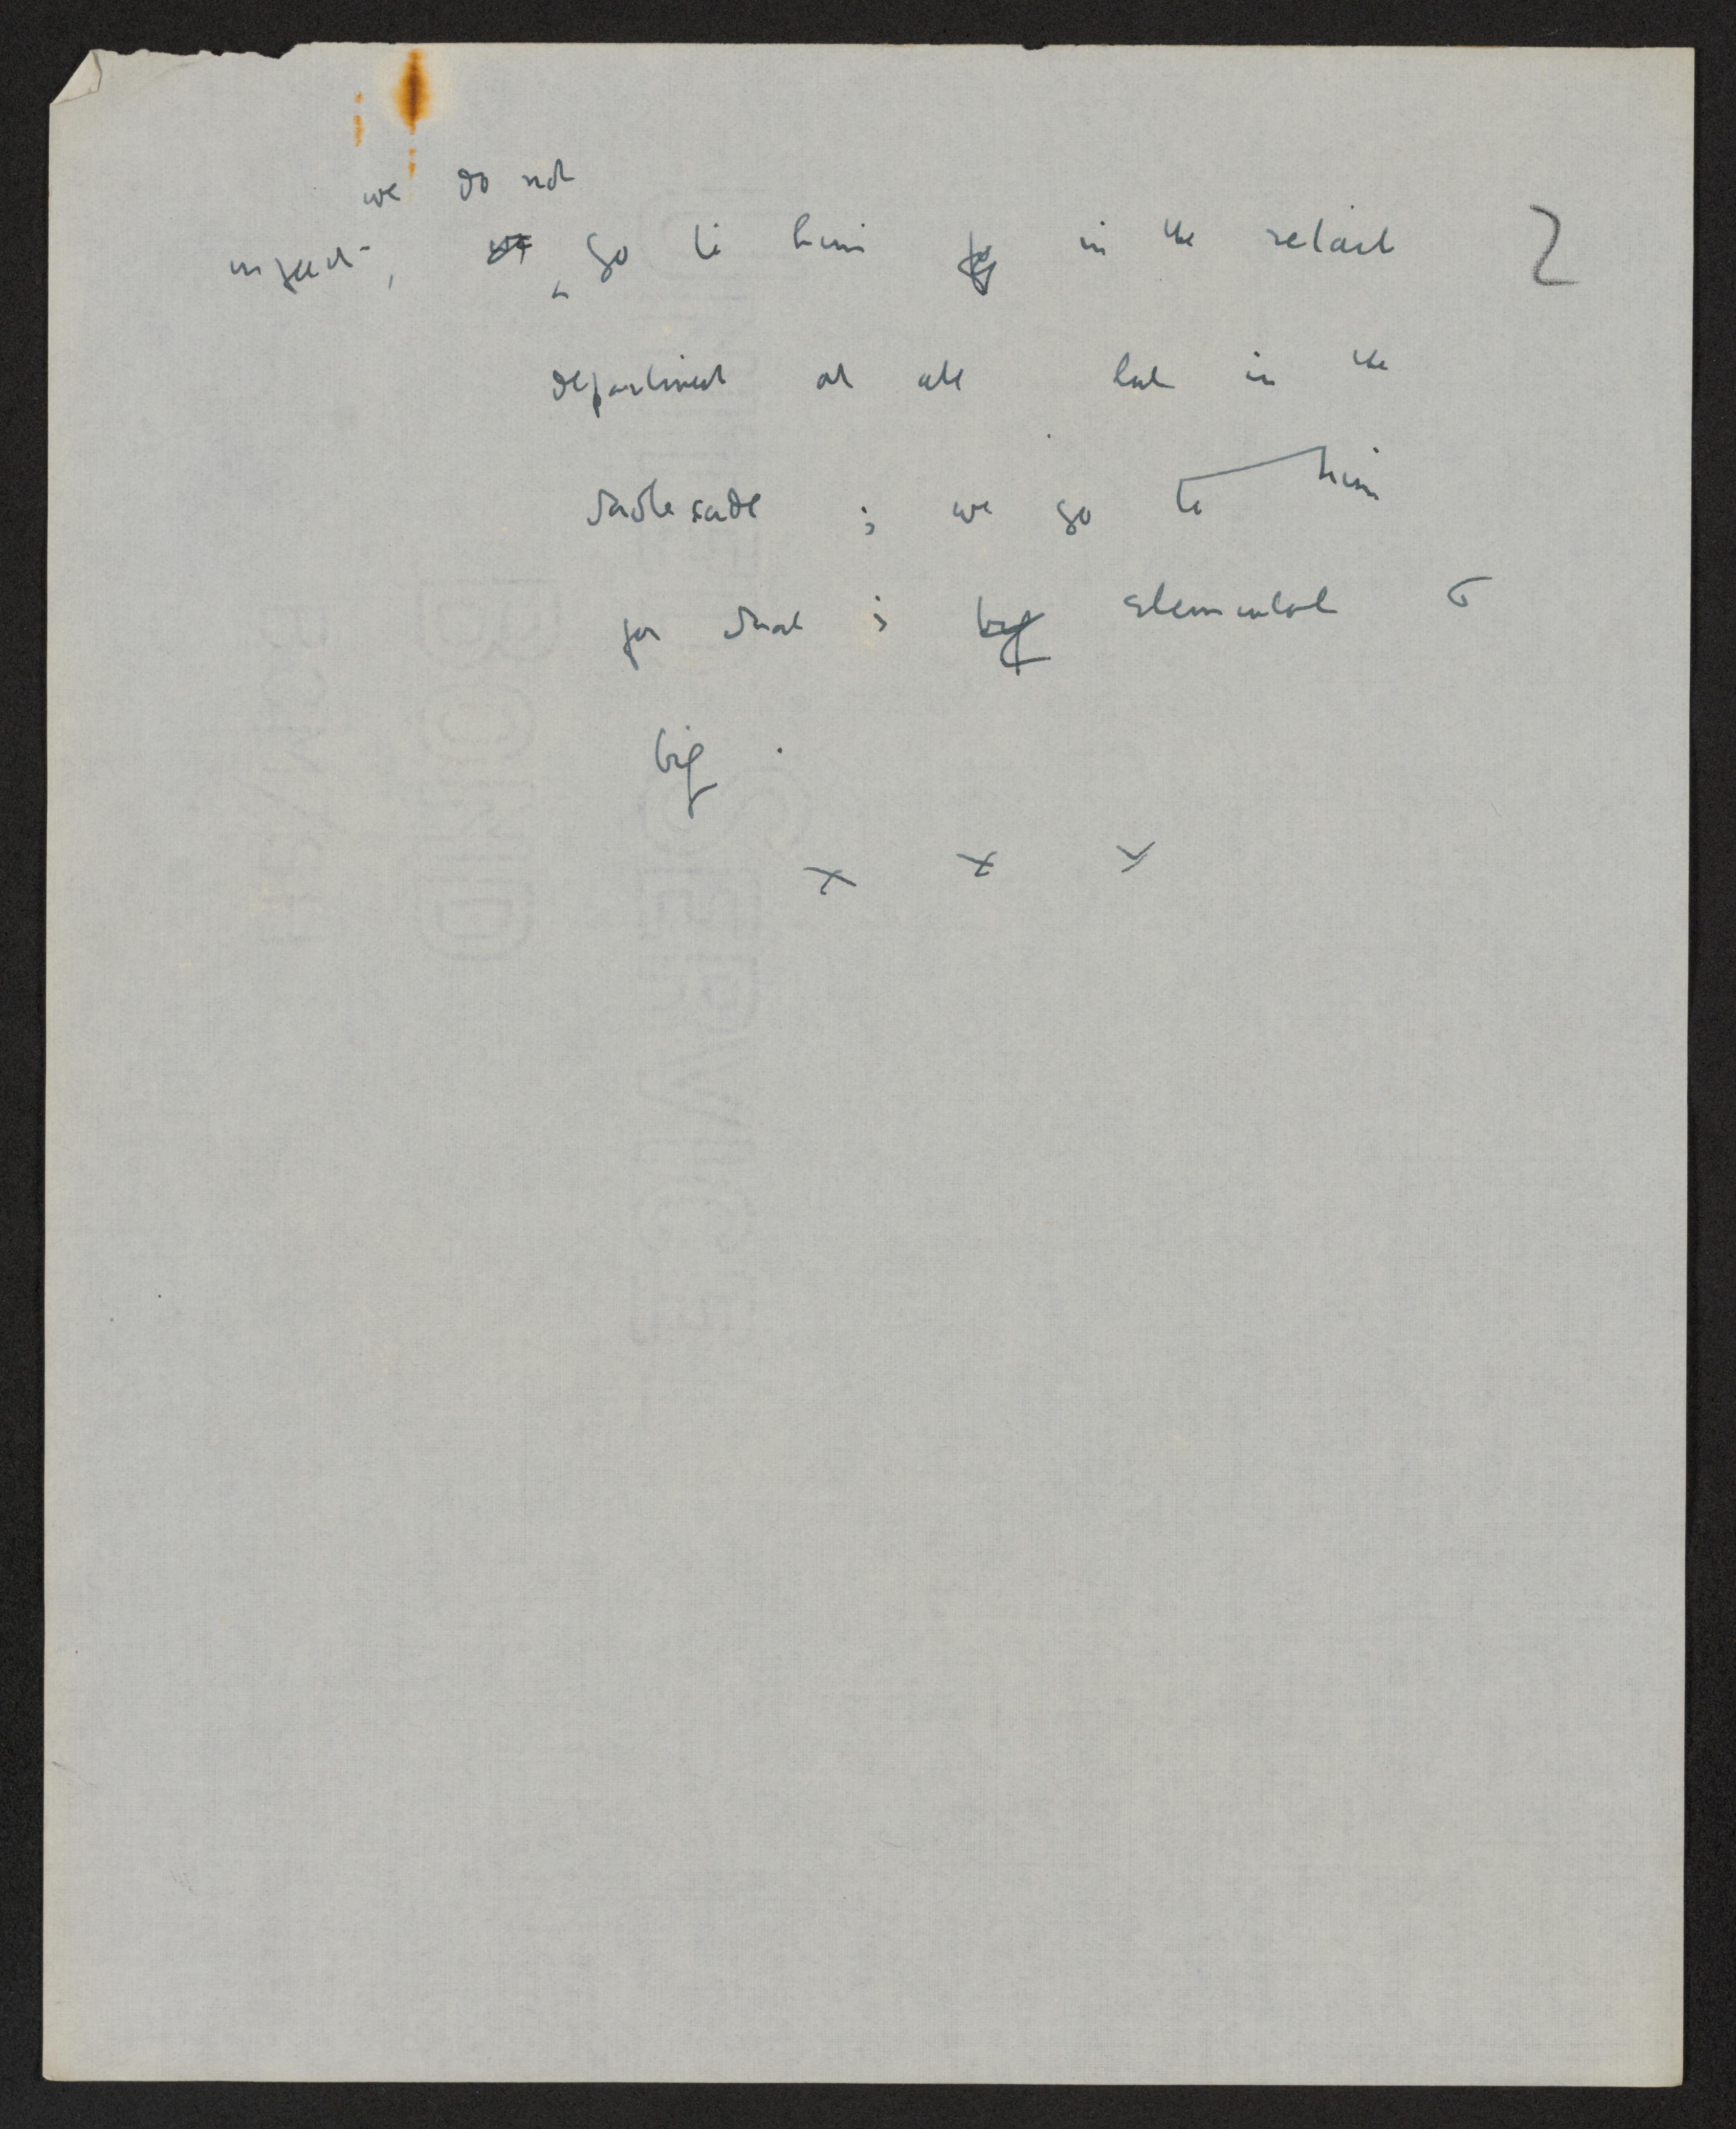 we do not
in fact, go to him in the retail
department at all but in the
wholesale ; we go to him
for what is big elemental &
big .
x x x